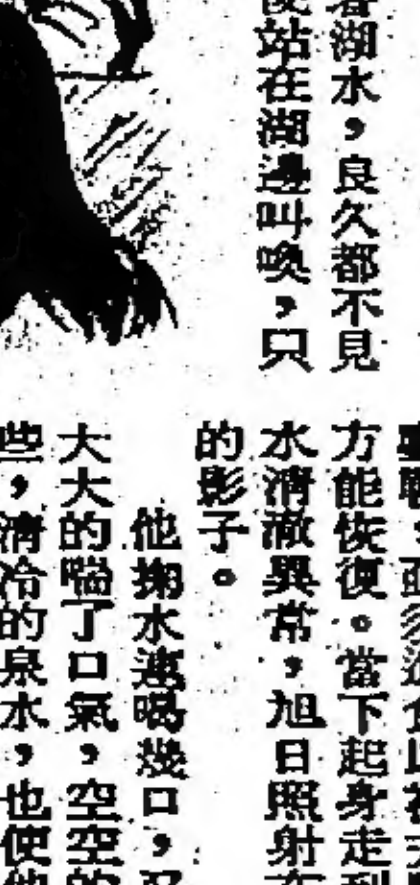 湖水，良久都不見
站在湖邊叫喚，只
方能恢復。當下起身走到
水清澈異常，旭日照射在
的影子。
他掬水連喝幾口，又
大大的喘了口氣，空空的
些，清冷的泉水，也使他